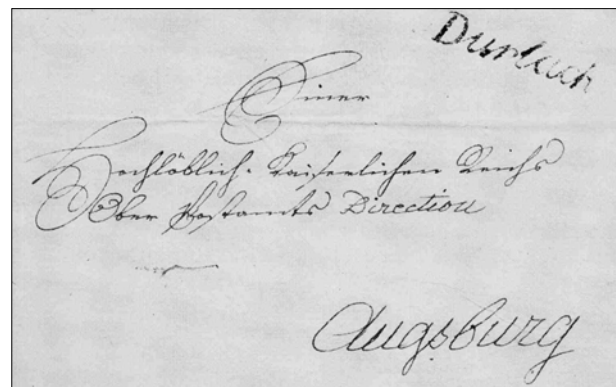 Durlach
Einer
Hochlöblich. Kaiserlichen Reichs
Ober Postamts Direction
Augsburg